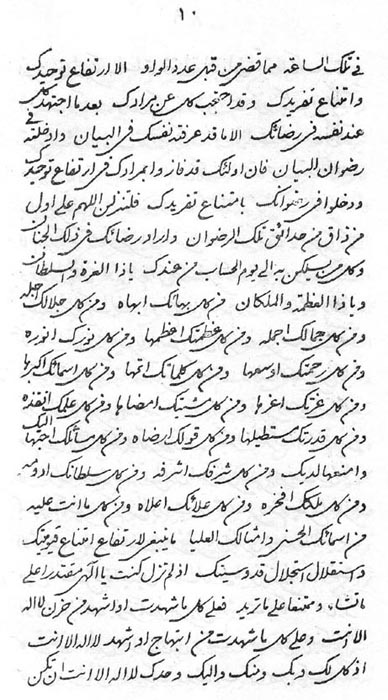 ١٠
في تلك الساعة مما قضى من قبل عدد الواو الا ارتفاع توحيدك
وامتناع تفريدك وقد احتجب كل عن مرادك بعد ما اجتهد كل
عند نفسه في رضائك الا من قد عرفته نفسك في البيان وادخلته في
رضوان البيان فان اولئك قد فازوا بمرادك في ارتفاع توحيدك
ودخلوا في رضوانك بامتناع تفريدك فلتنزلن اللهم على اول
من ذاق من حدائق تلك الرضوان واراد رضائك في ذلك الجنان
وكل من يسكن به الى يوم الحساب من عندك يا ذا العزة والسلطان
ويا ذا العظمة والملكان من كل بهائك ابهاه ومن كل جلالك اجله
ومن كل جمالك اجمله ومن كل عظمتك اعظمها ومن كل نورك انوره
ومن كل رحمتك اوسعها ومن كل كلماتك اتمها ومن كل اسمائك اكبرها
ومن كل عزتك اعزها ومن كل مشيتك امضاها ومن كل علمك انفذه
ومن كل قدرتك مستطيلها ومن كل قولك ارضاه ومن كل مسائلك احبها اليك
وامنعها لديك ومن كل شرفك اشرفه ومن كل سلطانك ادومه
ومن كل ملكك افخره ومن كل علائك اعلاه ومن كل ما انت عليه
من اسمائك الحسنى وامثالك العليا ما ينبغي لارتفاع امتناع قيوميتك
واستقلال استجلال قدوسيتك اذ لم تزل كنت يا الهي مقتدرا على
ما تشاء وممتنعا على ما تريد فعلى كل ما شهدت او اشهد من حزن لا اله
الا انت وعلى كل ما شهدت من ابتهاج او اشهد لا اله الا انت
اذ كل لك وبك ومنك واليك وحدك لا اله الا انت ان تكن